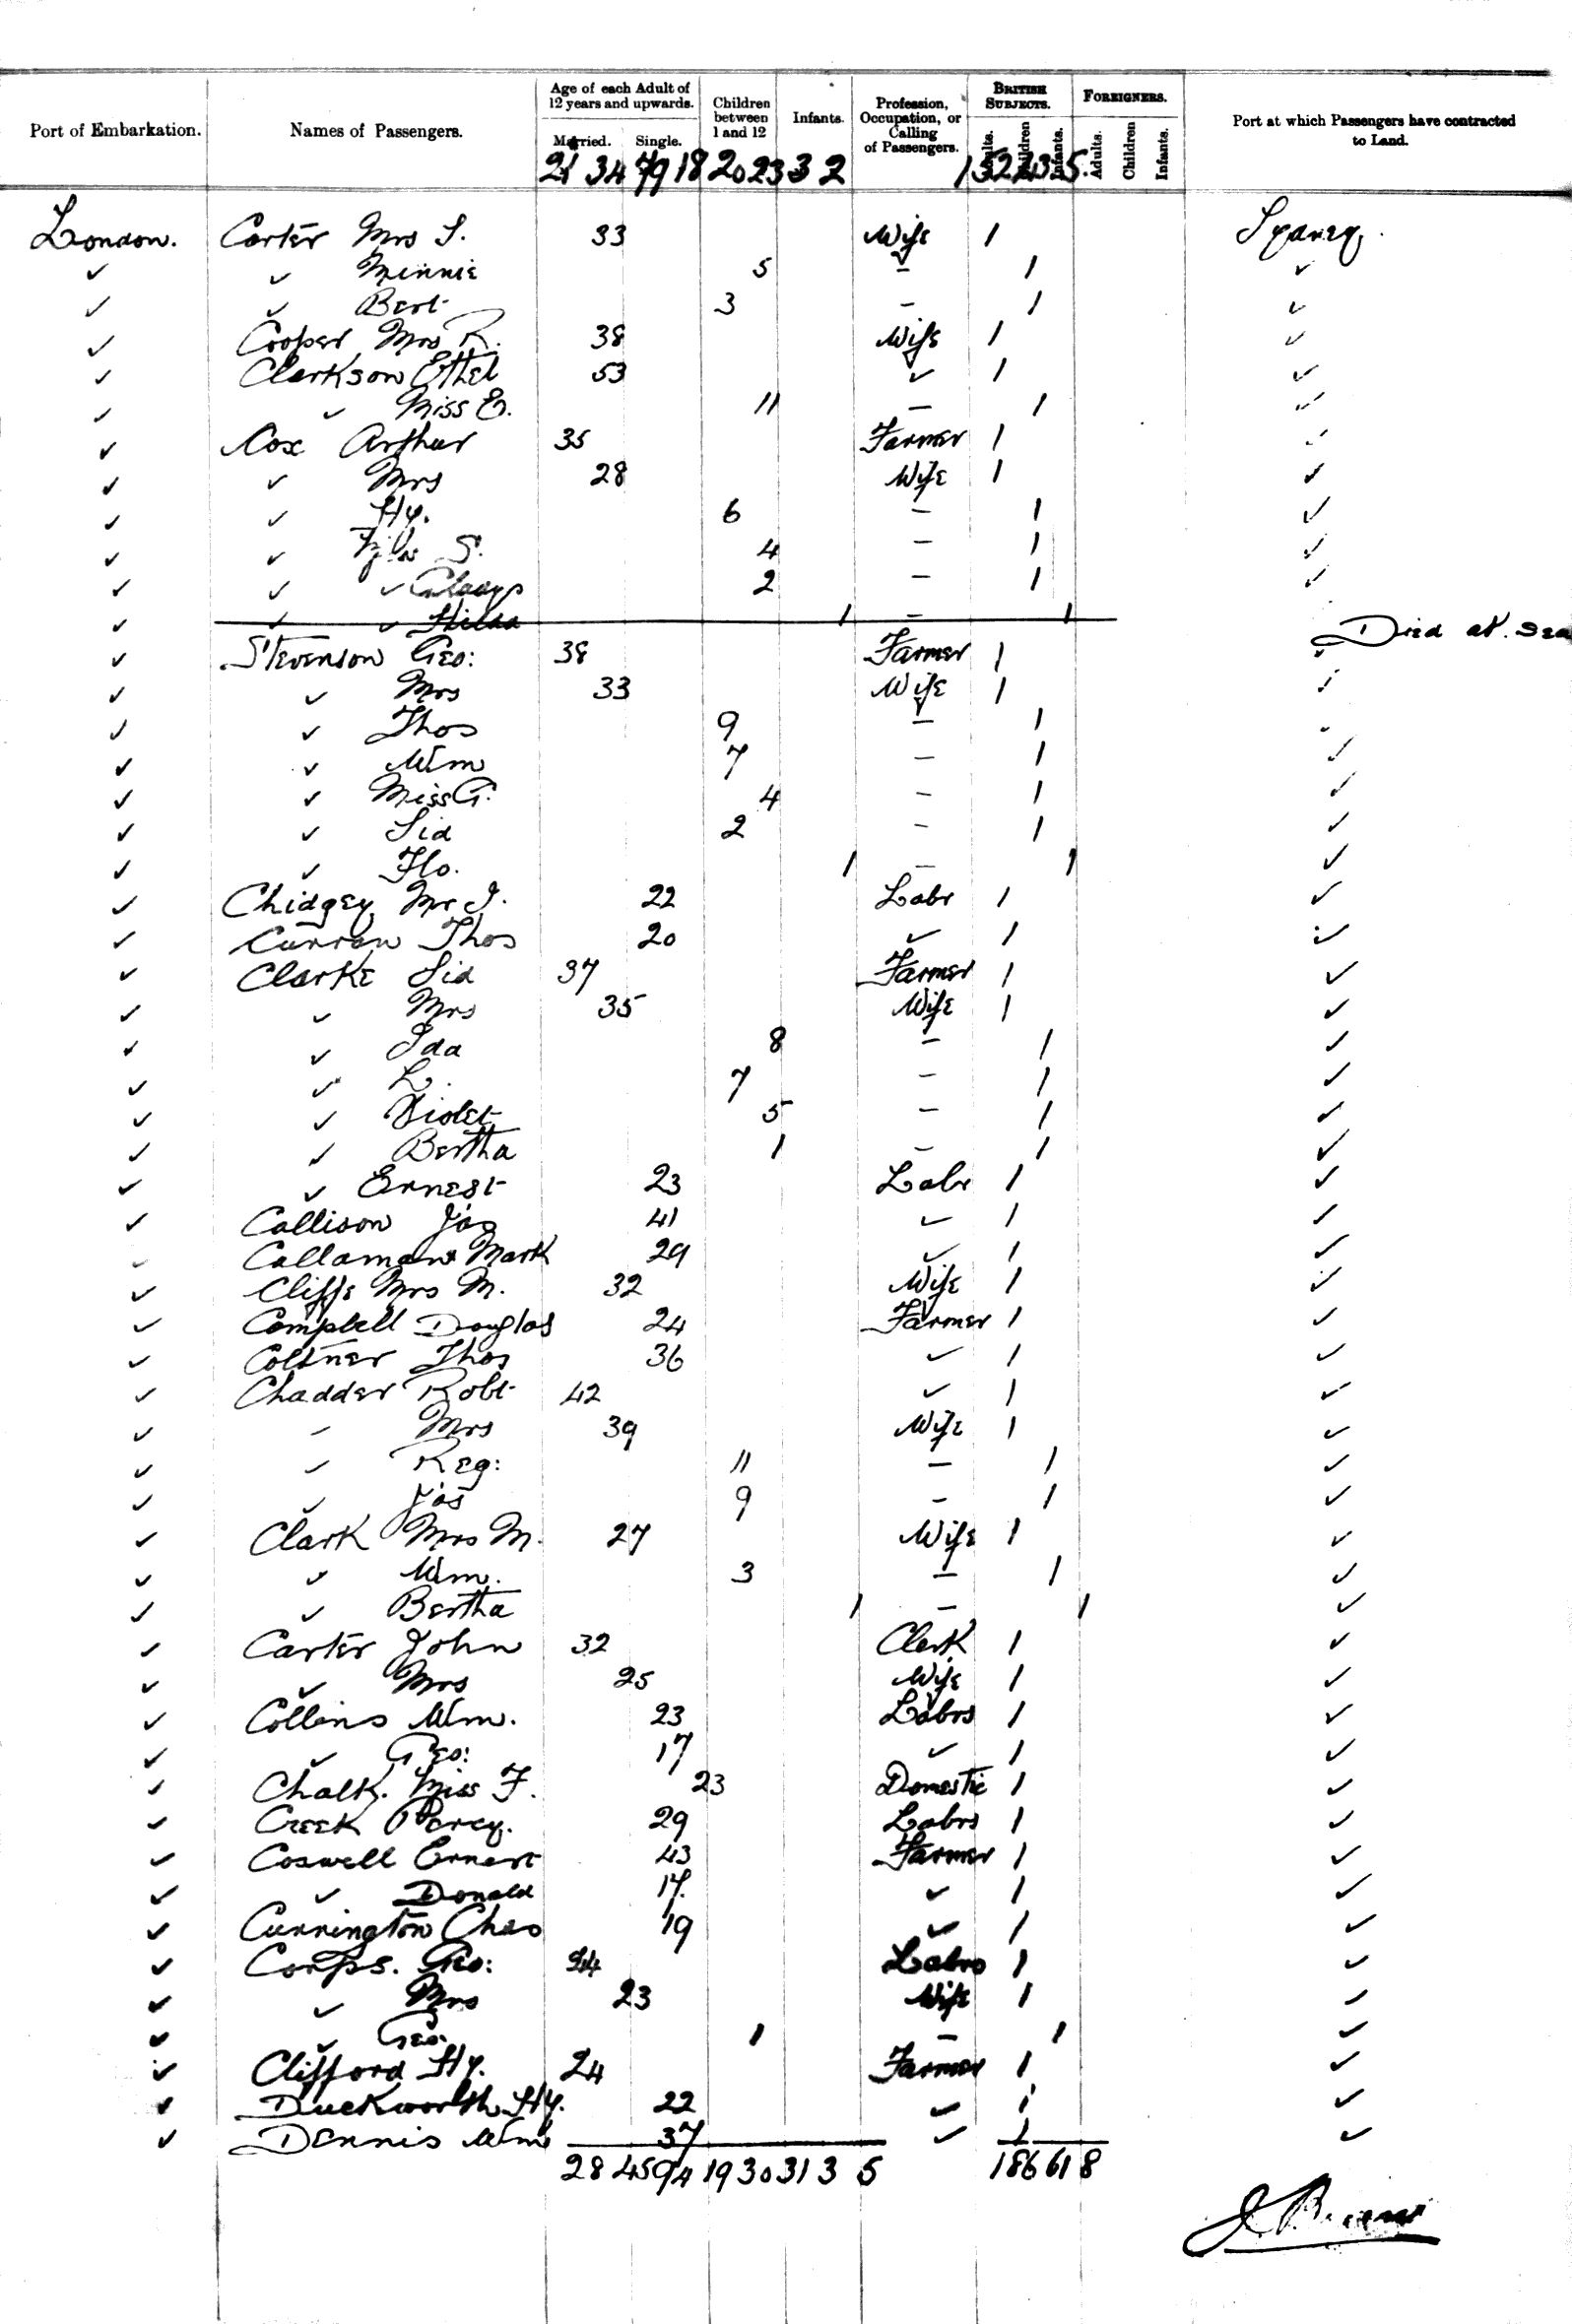 Port of Embarkation. Names of Passengers. Age of each Adult of 12 years and upwards. Married. Single. Children between 1 and 12 Infants. Profession, Occupation, or Calling of Passengers. British Subjects. Adults. Children Infants. Foreigners. Adults. Children Infants. Port at which Passengers have contracted to Land.
21 34 79 18 20 23 3 2 152 43 5
London. Carter Mrs S. 33 Wife 1 Sydney.
✓ ✓ Minnie 5 – 1 ✓
✓ ✓ Bert 3 – 1 ✓
✓ Cooper Mrs R. 38 Wife 1 ✓
✓ Clarkson Ethel 53 ✓ 1 ✓
✓ ✓ Miss E. 11 – 1 ✓
✓ Cox Arthur 35 Farmer 1 ✓
✓ ✓ Mrs 28 Wife 1 ✓
✓ ✓ Hy. 6 – 1 ✓
✓ ✓ S. 4 – 1 ✓
✓ ✓ ✓ Gladys 2 – 1 ✓
✓ ✓ ✓ Hilda 1 – 1 Died at Sea
✓ Stevenson Geo: 38 Farmer 1 ✓
✓ ✓ Mrs 33 Wife 1 ✓
✓ ✓ Thos 9 – 1 -
✓ ✓ Wm 7 – 1 ✓
✓ ✓ Miss G. 4 – 1 ✓
✓ ✓ Sid 2 – 1 ✓
✓ ✓ Flo. 1 – 1 ✓
✓ Chidgey Mr J. 22 Labr 1 ✓
✓ Curran Thos 20 ✓ 1 ✓
✓ Clarke Sid 37 Farmer 1 ✓
✓ ✓ Mrs 35 Wife 1 ✓
✓ ✓ Ida 8 – 1 ✓
✓ ✓ L. 7 – 1 ✓
✓ ✓ Violet 5 – 1 ✓
✓ ✓ Bertha 1 – 1 ✓
✓ ✓ Ernest 23 Labr 1 ✓
✓ Collison Jas 41 ✓ 1 ✓
✓ Callaman Mark 29 ✓ 1 ✓
✓ Cliffe Mrs M. 32 Wife 1 ✓
✓ Campbell Douglas 24 Farmer 1 ✓
✓ Coltner Thos 36 ✓ 1 ✓
✓ Chadder Robt 42 ✓ 1 ✓
✓ ✓ Mrs 39 Wife 1 ✓
✓ ✓ Reg: 11 – 1 ✓
✓ ✓ Jas 9 – 1 ✓
✓ Clark Mrs M. 27 Wife 1 ✓
✓ ✓ Wm. 3 – 1 ✓
✓ ✓ Bertha 1 – 1 ✓
✓ Carter John 32 Clerk 1 ✓
✓ ✓ Mrs 25 Wife 1 ✓
✓ Collins Wm. 23 Labrs 1 ✓
✓ ✓ Geo: 17 ✓ 1 ✓
✓ Chalk. Miss F. 23 Domestic 1 ✓
✓ Creek Percy. 29 Labrs 1 ✓
✓ Coswell Ernest 43 Farmer 1 ✓
✓ ✓ Donald 17. ✓ 1 ✓
✓ Currington Chas 19 ✓ 1 ✓
✓ Corps. Geo: 24 Labrs 1 ✓
✓ ✓ Mrs 23 Wife 1 ✓
✓ ✓ Geo. 1 – 1 ✓
✓ Clifford Hy. 24 Farmer 1 ✓
✓ Duckworth Hy. 22 ✓ 1 ✓
✓ Dennis Wm 37 ✓ 1 ✓
28 45 94 19 30 31 3 5 186 61 8